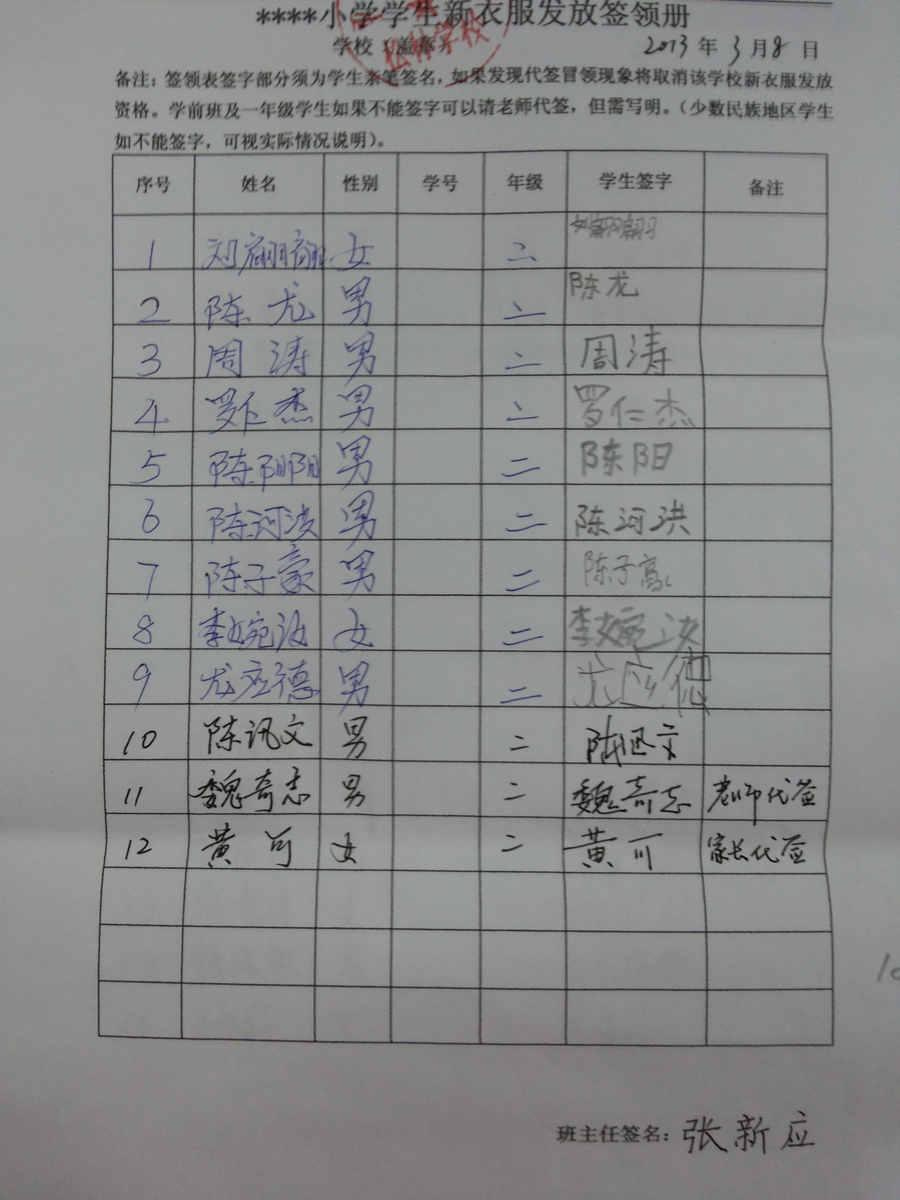 ****小学学生新衣服发放签领册
学校（盖章） 2013年3月8日
备注：签领表签字部分须为学生亲笔签名，如果发现代签冒领现象将取消该学校新衣服发放
资格。学前班及一年级学生如果不能签字可以请老师代签，但需写明。（少数民族地区学生
如不能签字，可视实际情况说明）。
序号 姓名 性别 学号 年级 学生签字 备注
1 刘翩翩 女 二 刘翩翩
2 陈龙 男 二 陈龙
3 周涛 男 二 周涛
4 罗仁杰 男 二 罗仁杰
5 陈阳阳 男 二 陈阳
6 陈河洪 男 二 陈河洪
7 陈子豪 男 二 陈子
8 李婉汝 女 二 李婉汝
9 龙应德 男 二 龙应德
10 陈讯文 男 二 陈迅文
11 魏奇志 男 二 魏奇志 老师代签
12 黄可 女 二 黄可 家长代签
班主任签名：张新应